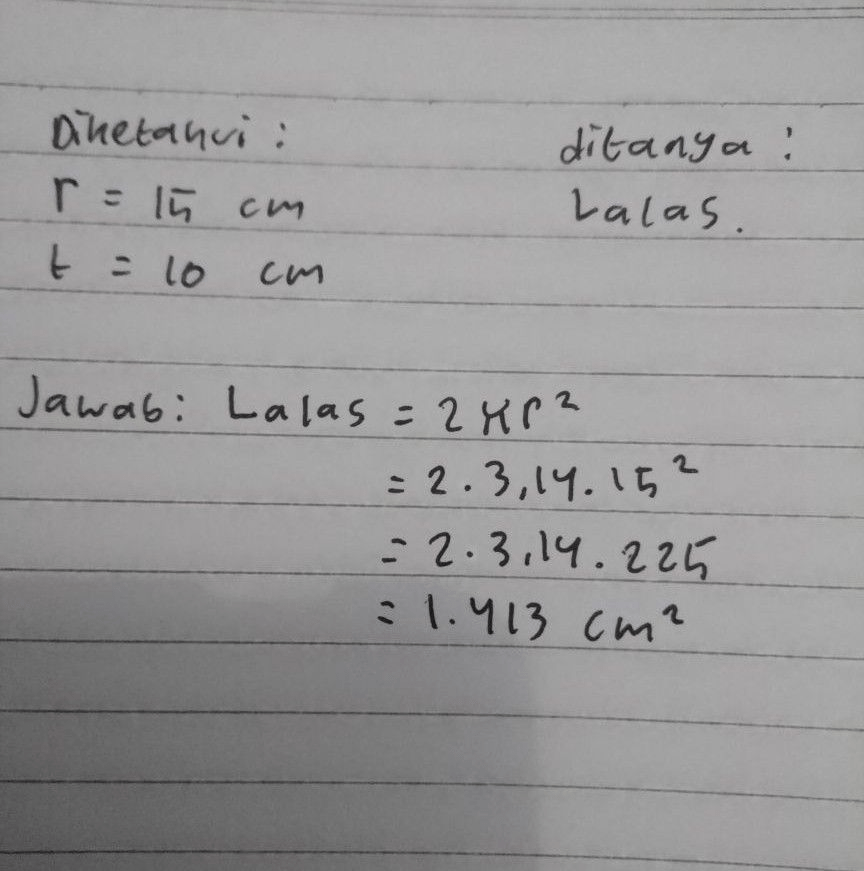 Diketahui :
r = 15 cm
t = 10 cm
ditanya :
Lalas.
Jawab: Lalas = 2 πr²
= 2.3,14.15²
= 2.3,14.225
= 1.413 cm²